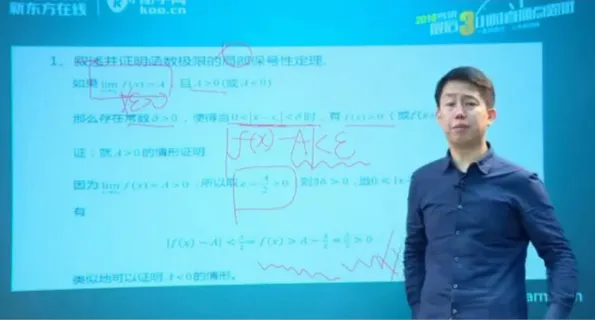 新东方在线
koo.cn
2016考研
最后3小时直播点题班
1、叙述并证明函数极限的局部保号性定理。
如果 lim f(x)=A 且 A>0(或 A<0)
∀ε>0
那么存在常数 δ>0，使得当 0<|x-x₀|<δ 时，有 f(x)>0（或 f(x)
|f(x)-A|<ε
证：就 A>0 的情形证明
因为 lim f(x)=A>0，所以取 ε=A/2>0 则∃δ>0，当0<|x-
有
|f(x)-A|<A/2⇒f(x)>A-A/2=A/2>0
类似地可以证明 A<0 的情形。